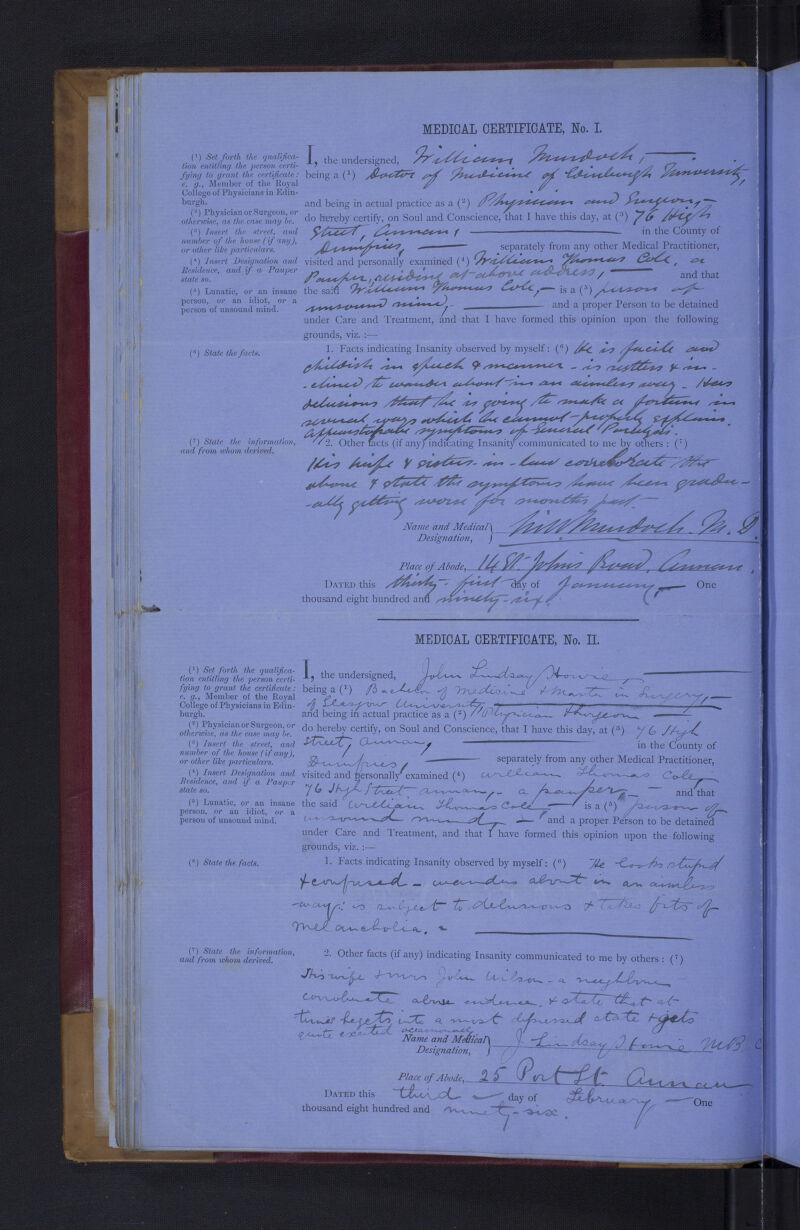 MEDICAL CERTIFICATE, No. I.
(¹) Set forth the qualifica-
tion entitling the person certi-
fying to grant the certificate:
e. g., Member of the Royal
College of Physicians in Edin-
burgh.
(²) Physician or Surgeon, or
otherwise, as the case may be.
(³) Insert the street, and
number of the house (if any),
or other like particulars.
(⁴) Insert Designation and
Residence, and if a Pauper
state so.
(⁵) Lunatic, or an insane
person, or an idiot, or a
person of unsound mind.
(⁶) State the facts.
(⁷) State the information,
and from whom derived.
I, the undersigned, William Murdoch,
being a (¹) Doctor of Medicine of Edinburgh University,
and being in actual practice as a (²) Physician and Surgeon,
do hereby certify, on Soul and Conscience, that I have this day, at (³) 76 High
Street, Annan, in the County of
Dumfries, separately from any other Medical Practitioner,
visited and personally examined (⁴) William Thomas Cole, a
Pauper, residing at above address, and that
the said William Thomas Cole, is a (⁵) person of
unsound mind, and a proper Person to be detained
under Care and Treatment, and that I have formed this opinion upon the following
grounds, viz. :—
1. Facts indicating Insanity observed by myself: (⁶) He is facile and
childish in speech & manner - is restless & in-
-clined to wander about in an aimless way - Has
delusions that he is going to make a fortune in
several ways which he cannot properly explain.
symptoms of General Paralysis.
2. Other facts (if any) indicating Insanity communicated to me by others: (⁷)
His wife & sisters-in-law corroborate the
above & state the symptoms have been gradu-
-ally getting worse for months past
Name and Medical Designation, Wm Murdoch. M. D.
Place of Abode, 14 St. Johns Road, Annan.
DATED this thirty-first day of January One
thousand eight hundred and ninety-six.
MEDICAL CERTIFICATE, No. II.
(¹) Set forth the qualifica-
tion entitling the person certi-
fying to grant the certificate:
e. g., Member of the Royal
College of Physicians in Edin-
burgh.
(²) Physician or Surgeon, or
otherwise, as the case may be.
(³) Insert the street, and
number of the house (if any),
or other like particulars.
(⁴) Insert Designation and
Residence, and if a Pauper
state so.
(⁵) Lunatic, or an insane
person, or an idiot, or a
person of unsound mind.
(⁶) State the facts.
(⁷) State the information,
and from whom derived.
I, the undersigned, John Lindsay Howie,
being a (¹) Bachelor of Medicine & Master in Surgery,
of Glasgow University
and being in actual practice as a (²) Physician & Surgeon
do hereby certify, on Soul and Conscience, that I have this day, at (³) 76 High
Street, Annan, in the County of
Dumfries, separately from any other Medical Practitioner,
visited and personally examined (⁴) William Thomas Cole,
76 High Street Annan, - a pauper, and that
the said William Thomas Cole, is a (⁵) person of
unsound mind, and a proper Person to be detained
under Care and Treatment, and that I have formed this opinion upon the following
grounds, viz. :—
1. Facts indicating Insanity observed by myself: (⁶) He looks stupid
& confused - wanders about in an aimless
way: is subject to delusions & takes fits of
melancholia.
2. Other facts (if any) indicating Insanity communicated to me by others: (⁷)
His wife & Mrs John Wilson - a neighbour
corroborate above evidence. & state that at
times he gets into a most depressed state & gets
quite excited occasionally
Name and Medical Designation, J. Lindsay Howie M.B. C
Place of Abode, 25 Port St. Annan
DATED this third day of February One
thousand eight hundred and ninety-six.